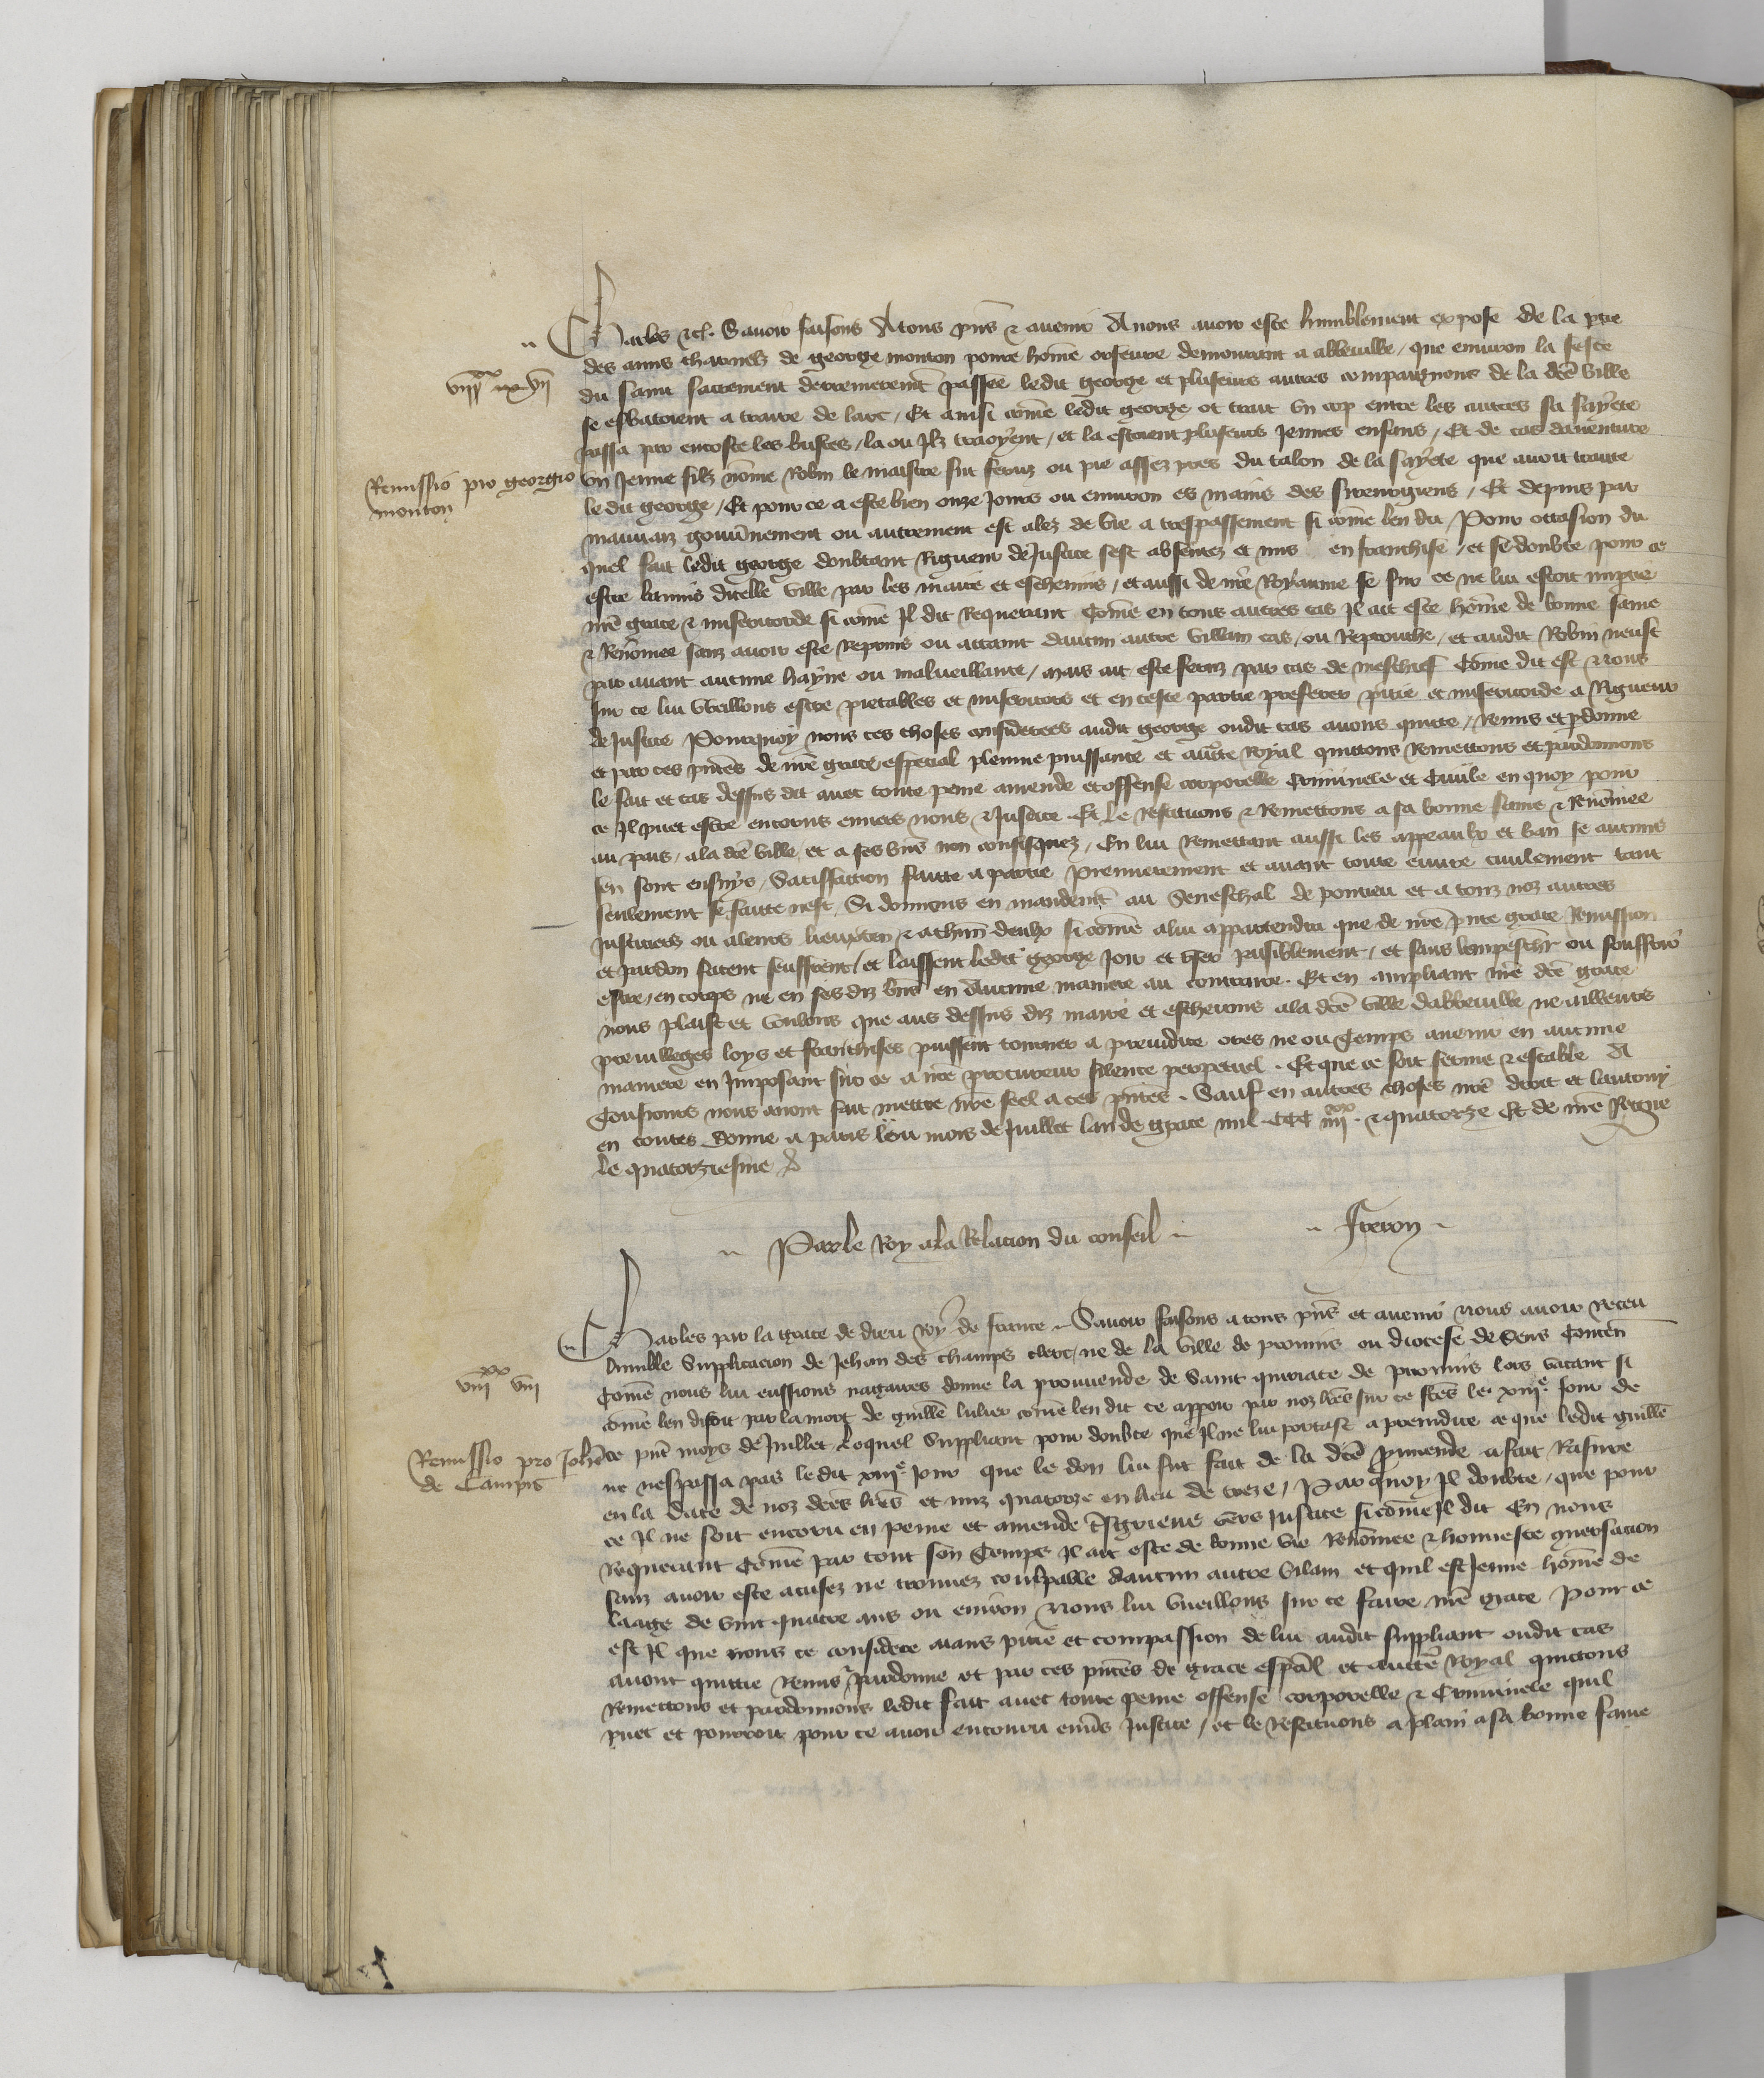 Charles etc. Savoir faisons A tous pns & avenir A nous avoir este humblement expose de la ptie
des amis charnelz de george monton povre home orfevre demourant a abbeville / que environ la feste
viiixx vii
du saint sacrement derrenieremt passee ledit george et plusieurs autres compaignons de la dce ville
se esbatoient a traire de larc / Et ainsi come ledit george ot trait un cop entre les autres sa sayete
passa par encoste les bustes / la ou Ilz traoyent / et la estoient plusieurs Jeunes enfans / Et de cas daventure
Remissio pro georgio monton
un Jeune filz nome Robin le maistre fut feruz ou pie assez pres du talon de la sayete que avoit traite
le dit george / Et pour ce a este bien onze Jours ou environ es mains des sirurgiens / Et depuis par
mauvaiz gouvnement ou autrement est alez de vie a trespassement si come len dit Pour occasion du
quel fait ledit george doubtant Rigueur de Justice sest absentez et mis en franchise / et se doubte pour ce
estre bannis dicelle ville par les maire et eschevins / et aussi de nre Royaume se sur ce ne lui estoit impartie
nre grace & misericorde si come Il dit Requerant Come en tous autres cas Il ait este home de bonne fame
& Renomee sanz avoir este Repris ou attaint daucun autre villain cas / ou Reprouche / et audit Robin neust
par avant aucune hayne ou malveillance / mais ait este feruz par cas de meschief Come dit est Nous
sur ce lui vueillons estre pietables et misericors et en ceste partie preferer pitie et misericorde a Rigueur
de Justice Pourquoy nous ces choses considerees audit george oudit cas avons quitte / Remis et pdonne
et par ces pntes de nre grace especial plenne puissance et aucte Royal quittons Remettons et pardonnons
le fait et cas dessus dit avec toute peine amende et offense corporelle Criminele et Civile en quoy pour
ce Il puet estre encorus envers nous & Justice Et Le Restituons & Remettons a sa bonne fame & Renomee
au pais / a la dce ville et a ses bns non confisquez / En lui Remettant aussi les appeaulx et ban se aucuns
sen sont ensuys / Satisfacion faitte a partie premierement et avant toute euvre civilement tant
seulement se faitte nest Si donnons en mandemt au Seneschal de pontieu et a touz noz autres
Justiciers ou a leurs lieuxten & a chun deulx si come a lui appartendra que de nre pnte grace Remission
et pardon facent seuffrent / et laissent ledit george Joir et user paisiblement / et sans lempeschr ou souffrir
estre / en corps ne en ses diz bns en Aucune maniere au contraire . Et en ampliant nre dce grace
nous plaist et voulons que aus dessus diz maire et eschevins a la dce ville dabbeville ne ailleurs
previlleges loys et franchises puissent tourner a preiudice ores ne ou Temps avenir en aucune
maniere en Imposant sur ce a nre procureur silence perpetuel . Et que ce soit ferme & estable A
Tousiours nous avons fait mettre nre seel a ces pntes . Sauf en autres choses nre droit et lautruy
en toutes Donne a paris lou mois de Juillet lan de grace mil CCC iiiixx & quatorze Et de nre Regne
le quatorziesme
Par le Roy a la Relacion du conseil
Freron
Charles par la grace de dieu Roy de france Savoir faisons a tous pns et avenir Nous avoir receu
humble Supplicacion de Jehan des champs clerc / ne de la ville de provins ou diocese de Sens Conten
viiixx viii
Come nous lui eussions nagaires donne la prouvende de Saint quiriace de provins lors vacant si
come len disoit par la mort de guille come len dit ce appoir par noz lres sur ce fces le xiiie Jour de
Remissio pro Johe de Campis
ce pnt moys de Juillet Loquel Suppliant pour doubte que Il ne lui portast a preiudice ce que ledit guille
ne trespassa pas le dit xiiie Jour que le don lui fut fait de la dce pvende a fait Rasure
en la date de noz dces lres et mis quatorze en lieu de treze / Par quoy Il doubte / que pour
ce Il ne soit encoru en peine et amende vers Justice si come Il dit En nous
Requerant Come par tout son Temps Il ait este de bonne vie Renomee & honneste conversacion
sanz avoir este acusez ne trouvez coulpable daucun autre vilain et quil est Jeune home de
laage de vint quatre ans ou environ Nous lui vueillons sur ce faire nre grace Pour ce
est Il que nous ce considere aians pitie et compassion de lui audit suppliant oudit cas
avons quittie Remis & pardonne et par ces pntes de grace espcal et auctte Royal quittons
Remettons et pardonnons ledit fait avec toute peine offense corporelle & Criminele quil
puet et pourroit pour ce avoir encouru envs Justice / et le Restituons a plain a sa bonne fame